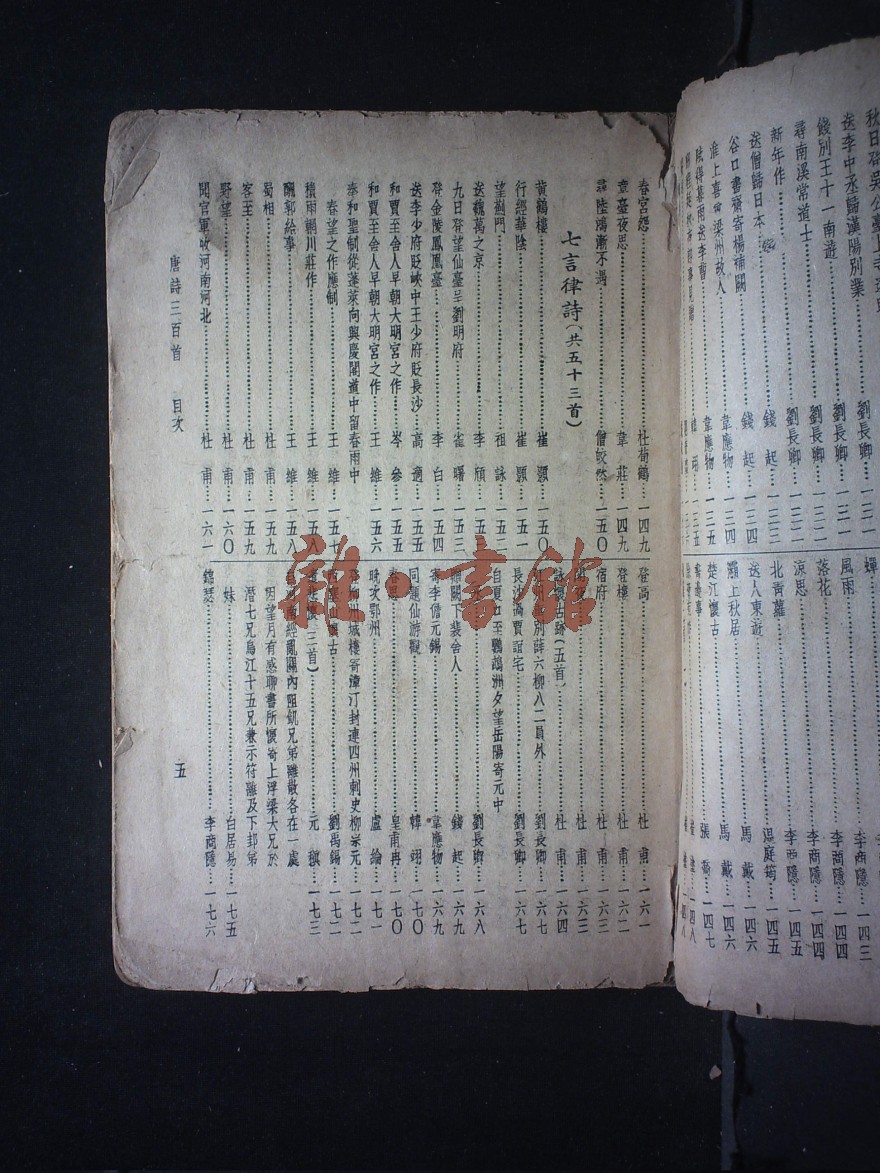 秋日登吳公臺上寺
送李中丞歸漢陽別業……劉長卿…一三一
餞別王十一南遊……劉長卿…一三二
尋南溪常道士……劉長卿…一三二
新年作……劉長卿…一三三
送僧歸日本……錢　起…一三四
谷口書齋寄楊補闕……錢　起…一三四
淮上喜會梁州故人……韋應物…一三四
賦得暮雨送李曹……韋應物…一三五
蟬……李商隱…一四三
風雨……李商隱…一四四
落花……李商隱…一四四
涼思……李商隱…一四五
北青蘿
送人東遊……溫庭筠…一四六
灞上秋居……馬　戴…一四六
楚江懷古……馬　戴…一四七
書邊事……張　喬…一四七
春宮怨……杜荀鶴…一四九
章臺夜思……韋　莊…一四九
尋陸鴻漸不遇……僧皎然…一五〇
七言律詩（共五十三首）
黃鶴樓……崔　顥…一五〇
行經華陰……崔　顥…一五一
望薊門……祖　詠…一五二
送魏萬之京……李　頎…一五五
九日登望仙臺呈劉明府……崔　曙…一五三
登金陵鳳凰臺……李　白…一五四
送李少府貶峽中王少府貶長沙…高　適…一五五
和賈至舍人早朝大明宮之作……岑　參…一五五
和賈至舍人早朝大明宮之作……王　維…一五六
奉和聖制從蓬萊向興慶閣道中留春雨中
春望之作應制……王　維…一五七
積雨輞川莊作……王　維…一五八
酬郭給事……王　維…一五八
蜀相……杜　甫…一五九
客至……杜　甫…一五九
野望……杜　甫…一六〇
聞官軍收河南河北……杜　甫…一六一
登高……杜　甫…一六一
登樓……杜　甫…一六二
宿府……杜　甫…一六三
閣夜……杜　甫…一六三
詠懷古跡（五首）……杜　甫…一六四
江州重別薛六柳八二員外……劉長卿…一六七
長沙過賈誼宅……劉長卿…一六七
自夏口至鸚鵡洲夕望岳陽寄元中
……劉長卿…一六八
贈闕下裴舍人……錢　起…一六九
寄李儋元錫……韋應物…一六九
同題仙游觀……韓　翃…一七〇
春思……皇甫冉…一七〇
晚次鄂州……盧　綸…一七一
登柳州城樓寄漳汀封連四州刺史柳宗元…一七二
西塞山懷古……劉禹錫…一七二
遣悲懷（三首）……元　稹…一七三
自河南經亂關內阻飢兄弟離散各在一處
因望月有感聊書所懷寄上浮梁大兄於
潛七兄烏江十五兄兼示符離及下邽弟
妹……白居易…一七五
錦瑟……李商隱…一七六
唐詩三百首　目次
五
雜·書館